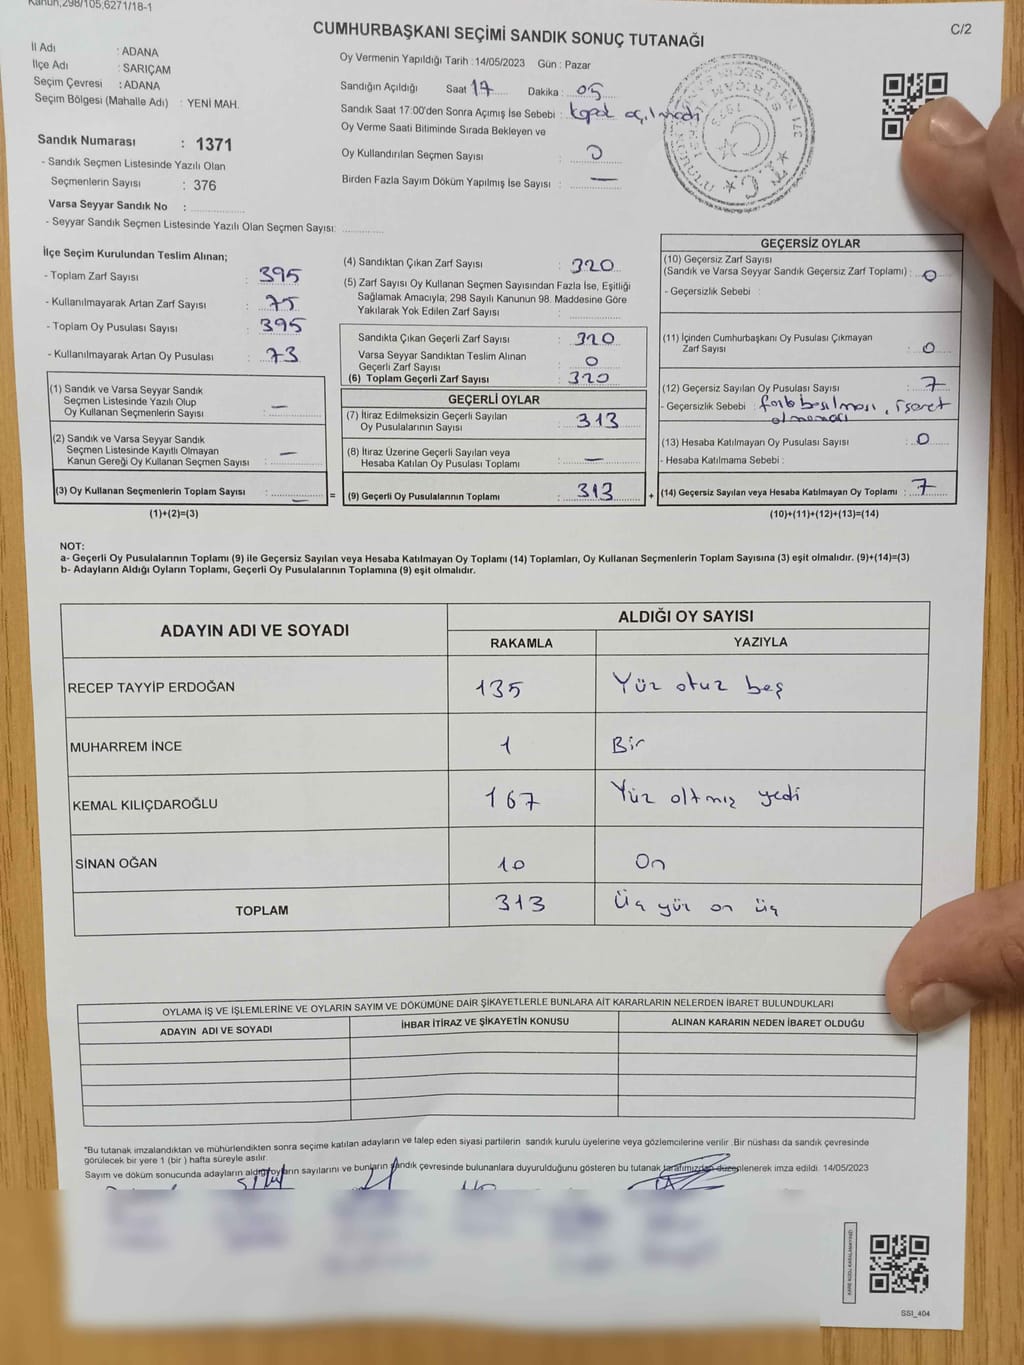 Kanun,298/105,6271/18-1
C/2
CUMHURBAŞKANI SEÇİMİ SANDIK SONUÇ TUTANAĞI
İl Adı : ADANA
İlçe Adı : SARIÇAM
Seçim Çevresi : ADANA
Seçim Bölgesi (Mahalle Adı) : YENİ MAH.
Sandık Numarası : 1371
- Sandık Seçmen Listesinde Yazılı Olan
Seçmenlerin Sayısı : 376
Varsa Seyyar Sandık No :
- Seyyar Sandık Seçmen Listesinde Yazılı Olan Seçmen Sayısı:
Oy Vermenin Yapıldığı Tarih :14/05/2023 Gün : Pazar
Sandığın Açıldığı Saat 17 Dakika : 05
Sandık Saat 17:00'den Sonra Açımış İse Sebebi :
Oy Verme Saati Bitiminde Sırada Bekleyen ve
Oy Kullandırılan Seçmen Sayısı : 0
Birden Fazla Sayım Döküm Yapılmış İse Sayısı : —
T.C.
İlçe Seçim Kurulundan Teslim Alınan;
- Toplam Zarf Sayısı : 395
- Kullanılmayarak Artan Zarf Sayısı : 75
- Toplam Oy Pusulası Sayısı : 395
- Kullanılmayarak Artan Oy Pusulası : 73
(1) Sandık ve Varsa Seyyar Sandık
Seçmen Listesinde Yazılı Olup
Oy Kullanan Seçmenlerin Sayısı : —
(2) Sandık ve Varsa Seyyar Sandık
Seçmen Listesinde Kayıtlı Olmayan
Kanun Gereği Oy Kullanan Seçmen Sayısı : —
(3) Oy Kullanan Seçmenlerin Toplam Sayısı : —
(1)+(2)=(3)
(4) Sandıktan Çıkan Zarf Sayısı : 320
(5) Zarf Sayısı Oy Kullanan Seçmen Sayısından Fazla İse, Eşitliği
Sağlamak Amacıyla; 298 Sayılı Kanunun 98. Maddesine Göre
Yakılarak Yok Edilen Zarf Sayısı :
Sandıkta Çıkan Geçerli Zarf Sayısı : 320
Varsa Seyyar Sandıktan Teslim Alınan
Geçerli Zarf Sayısı : 0
(6) Toplam Geçerli Zarf Sayısı : 320
GEÇERLİ OYLAR
(7) İtiraz Edilmeksizin Geçerli Sayılan
Oy Pusulalarının Sayısı : 313
(8) İtiraz Üzerine Geçerli Sayılan veya
Hesaba Katılan Oy Pusulası Toplamı : —
= (9) Geçerli Oy Pusulalarının Toplamı : 313
GEÇERSİZ OYLAR
(10) Geçersiz Zarf Sayısı
(Sandık ve Varsa Seyyar Sandık Geçersiz Zarf Toplamı) : 0
- Geçersizlik Sebebi :
(11) İçinden Cumhurbaşkanı Oy Pusulası Çıkmayan
Zarf Sayısı : 0
(12) Geçersiz Sayılan Oy Pusulası Sayısı : 7
- Geçersizlik Sebebi : fazla basılması, işaret
olmaması
(13) Hesaba Katılmayan Oy Pusulası Sayısı : 0
- Hesaba Katılmama Sebebi :
+ (14) Geçersiz Sayılan veya Hesaba Katılmayan Oy Toplamı : 7
(10)+(11)+(12)+(13)=(14)
NOT:
a- Geçerli Oy Pusulalarının Toplamı (9) ile Geçersiz Sayılan veya Hesaba Katılmayan Oy Toplamı (14) Toplamları, Oy Kullanan Seçmenlerin Toplam Sayısına (3) eşit olmalıdır. (9)+(14)=(3)
b- Adayların Aldığı Oyların Toplamı, Geçerli Oy Pusulalarının Toplamına (9) eşit olmalıdır.
ADAYIN ADI VE SOYADI ALDIĞI OY SAYISI
RAKAMLA YAZIYLA
RECEP TAYYİP ERDOĞAN 135 Yüz otuz beş
MUHARREM İNCE 1 Bir
KEMAL KILIÇDAROĞLU 167 Yüz altmış yedi
SİNAN OĞAN 10 On
TOPLAM 313 Üç yüz on üç
OYLAMA İŞ VE İŞLEMLERİNE VE OYLARIN SAYIM VE DÖKÜMÜNE DAİR ŞİKAYETLERLE BUNLARA AİT KARARLARIN NELERDEN İBARET BULUNDUKLARI
ADAYIN ADI VE SOYADI İHBAR İTİRAZ VE ŞİKAYETİN KONUSU ALINAN KARARIN NEDEN İBARET OLDUĞU
"Bu tutanak imzalandıktan ve mühürlendikten sonra seçime katılan adayların ve talep eden siyasi partilerin sandık kurulu üyelerine veya gözlemcilerine verilir .Bir nüshası da sandık çevresinde
görülecek bir yere 1 (bir ) hafta süreyle asılır.
Sayım ve döküm sonucunda adayların aldığı oyların sayılarını ve bunların sandık çevresinde bulunanlara duyurulduğunu gösteren bu tutanak tarafımızdan düzenlenerek imza edildi. 14/05/2023
SSI_404